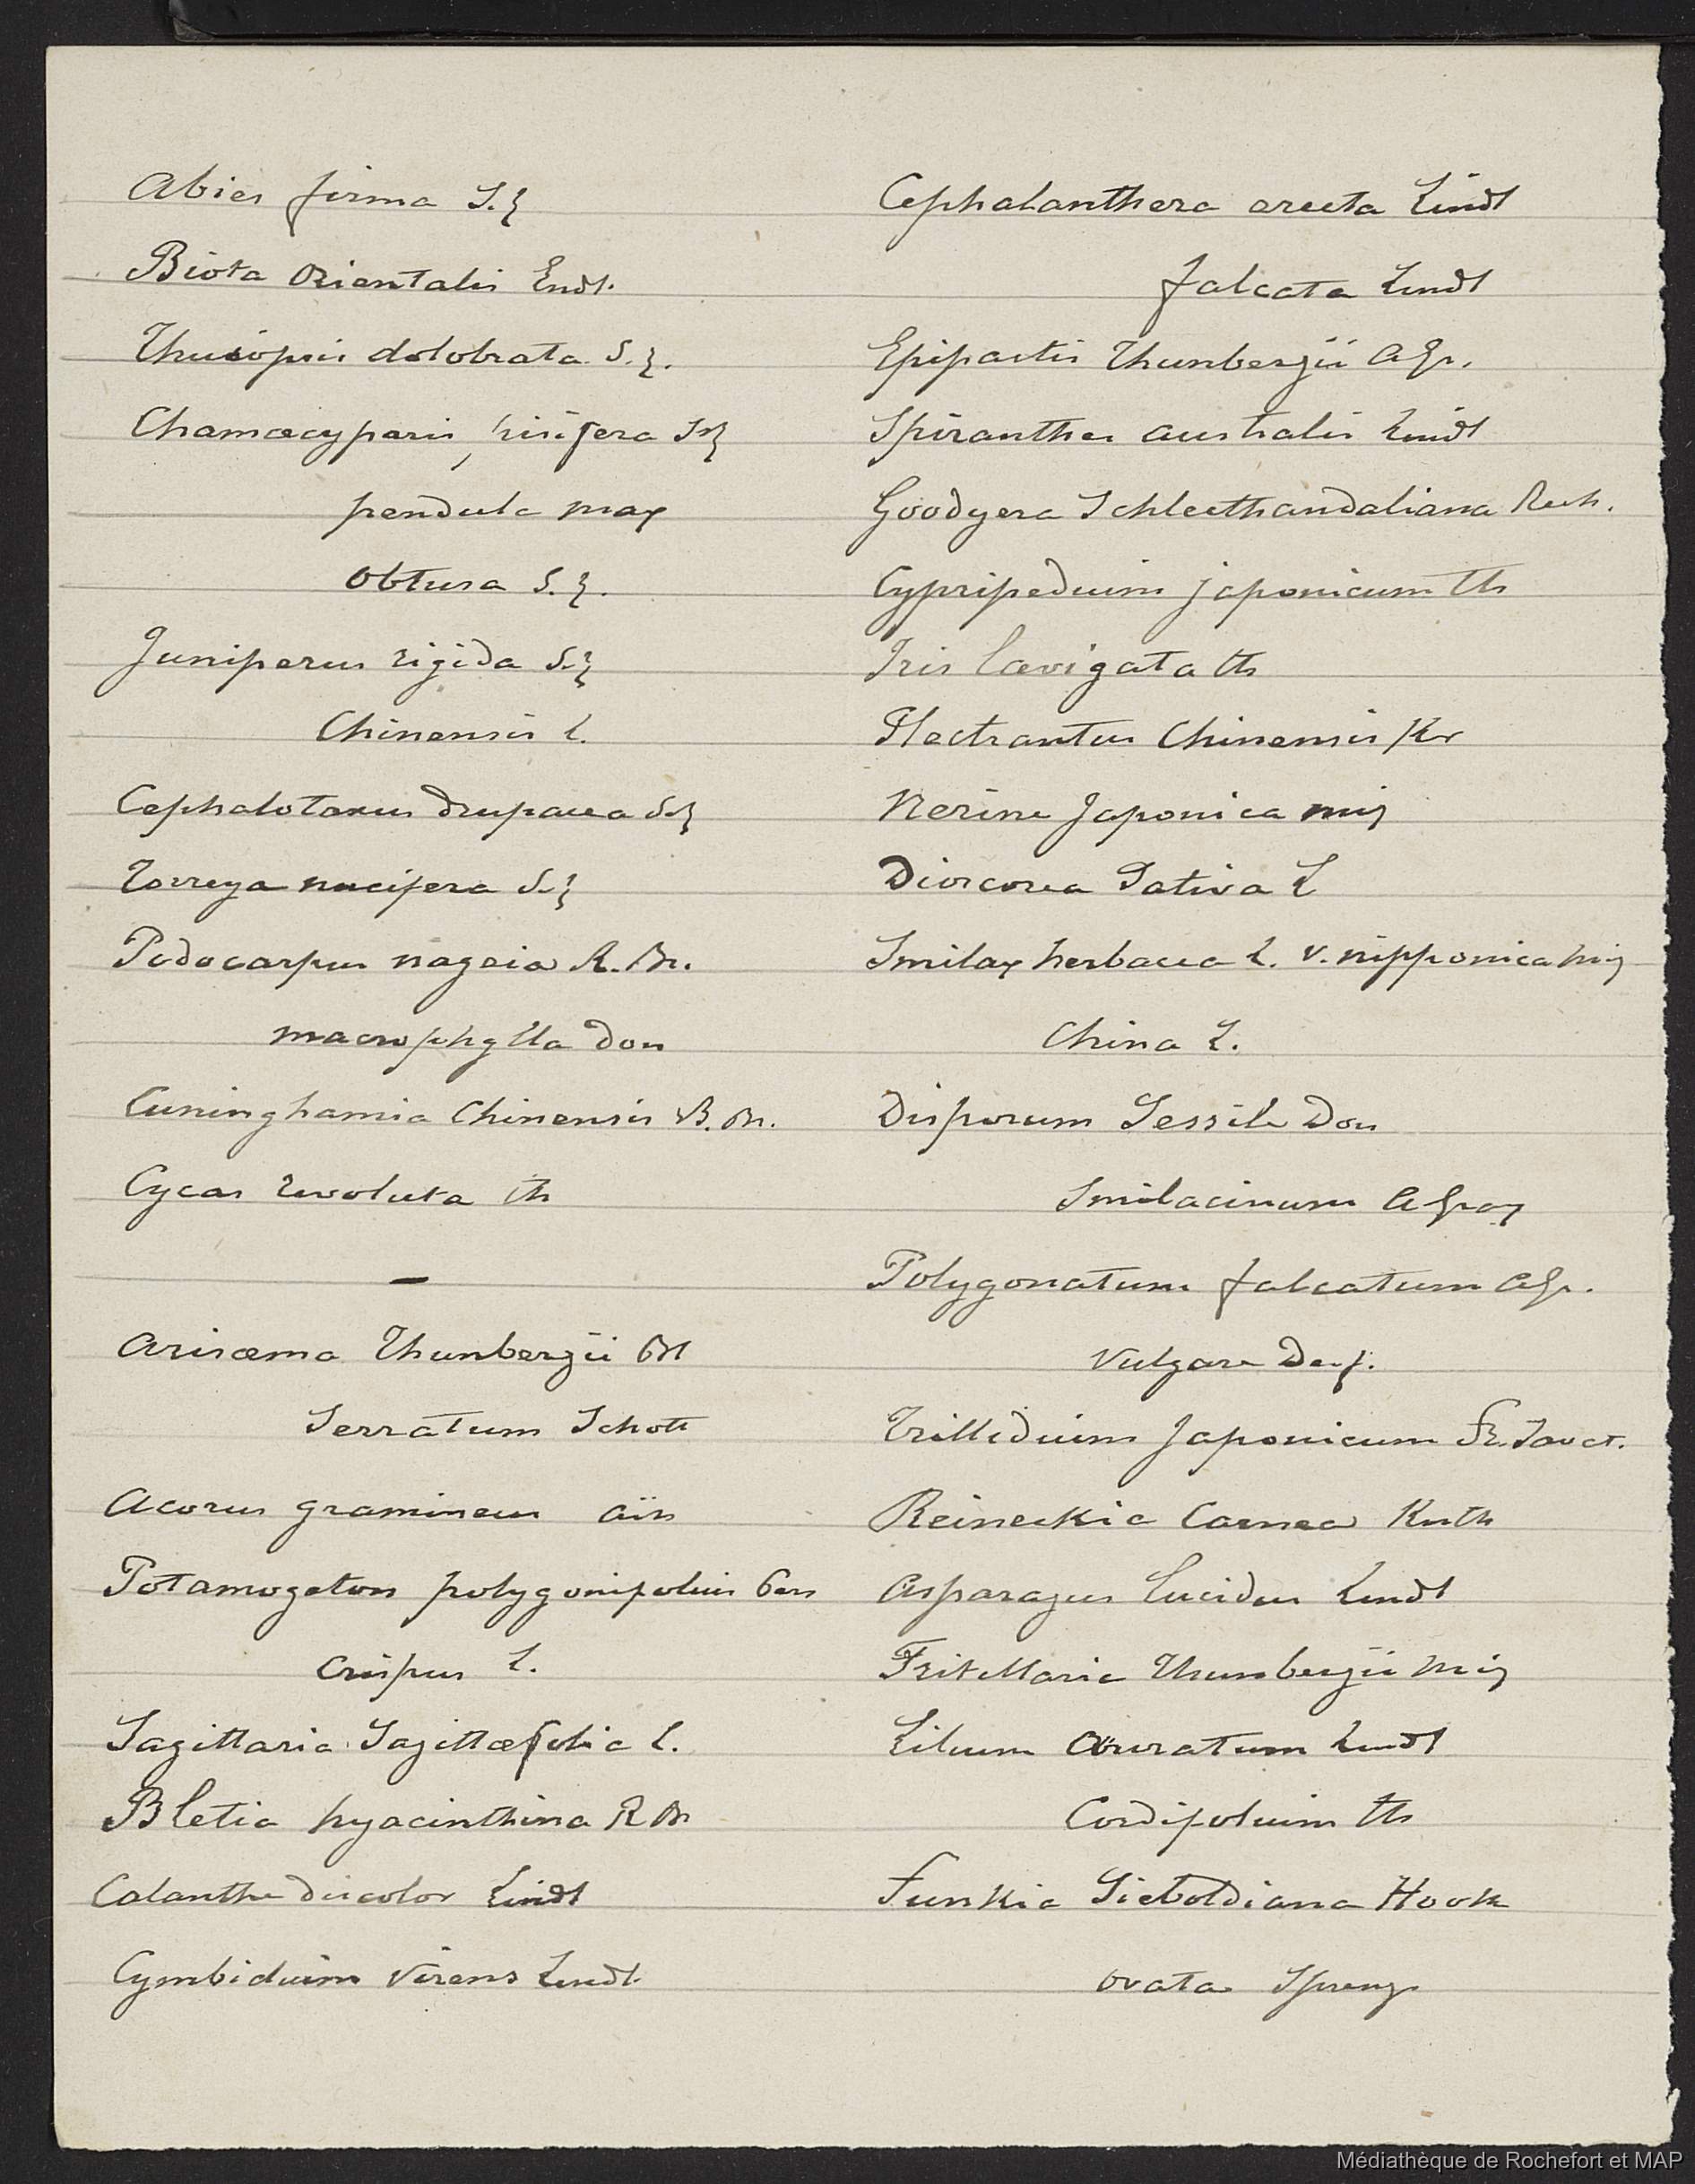 Abies firma S.Z
Biota Orientalis Endl.
Thuiopsis dolobrata S.Z.
Chamæcyparis, pisifera S.Z
pendula Max
Obtusa S.Z.
Juniperus rigida S.Z
Chinensis L.
Cephalotaxus drupacea S.Z
Torreya nucifera S.Z
Podocarpus nageia R. Br.
macrophylla Don
Cuninghamia Chinensis R. Br.
Cycas revoluta th
—
Arisæma Thunbergii Bl
Serratum Schott
Acorus gramineus ait
Potamogeton polygonifolius Pers
Crispus L.
Sagittaria Sagittæfolia L.
Bletia hyacinthina R Br
Calanthe discolor Lindl
Cymbidium virens Lindl.
Cephalanthera erecta Lindl
falcata Lindl
Epipactis Thunbergii A Gr.
Spiranthes australis Lindl
Goodyera Schlecthandaliana Rech.
Cypripedium japonicum Th
Iris lævigata th
Plectrantus Chinensis Kr
Nerine Japonica miq
Dioscorea Sativa L
Smilax herbacea L. v. nipponica miq
China L.
Disporum Sessile Don
Smilacinum A Gray
Polygonatum falcatum A Gr.
Vulgare Desf.
Trillidium Japonicum Fr. Savat.
Reineckia Carnea Knth
Asparagus lucidus Lindl
Fritellaria Thunbergii Miq
Lilium auratum Lindl
Cordifolium th
Funkia Sieboldiana Hook
ovata Spreng
Médiathèque de Rochefort et MAP